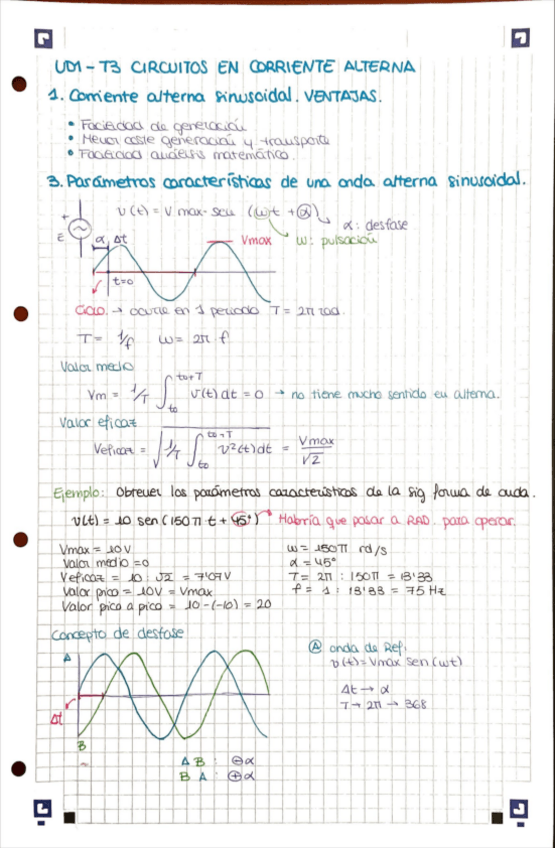 UD1 - T3 CIRCUITOS EN CORRIENTE ALTERNA
1. Corriente alterna sinusoidal. VENTAJAS.
• Facilidad de generación
• Menor coste generación y transporte
• Facilidad análisis matemático.
3. Parámetros característicos de una onda alterna sinusoidal.
v(t) = Vmax · sen (ωt + α)
α: desfase
ω: pulsación
+
E
α, Δt
Vmax
t=0
Ciclo. → ocurre en 1 periodo T = 2π rad.
T = 1/f ω = 2π · f
Valor medio
Vm = 1/T ∫ to+T to v(t) dt = 0 → no tiene mucho sentido en alterna.
Valor eficaz
Veficaz = √ 1/T ∫ to+T to v²(t) dt = Vmax/√2
Ejemplo: Obtener los parámetros característicos de la sig forma de onda.
v(t) = 10 sen (150 π t + 45°) → Habría que pasar a RAD. para operar.
Vmax = 10V
Valor medio = 0
Veficaz = 10 : √2 = 7'07V
Valor pico = 10V = Vmax
Valor pico a pico = 10 - (-10) = 20
ω = 150 π rd/s
α = 45°
T = 2π : 150π = 13'33
f = 1 : 13'33 = 75 Hz
Concepto de desfase
A
Δt
B
A B : ⊖α
B A : ⊕α
Ⓐ onda de Ref.
v(t) = Vmax sen (ωt)
Δt → α
T → 2π → 368